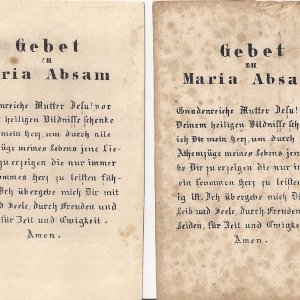 Gebet
zu
ria Absam
enreiche Mutter Jesu! vor
heiligen Bildnisse schenke
mein Herz, um durch alle
züge meines Lebens jene Lie-
zu erzeigen die nur immer
ommes Herz zu leisten füh-
Ich übergebe mich Dir mit
nd Seele, durch Freuden und
für Zeit und Ewigkeit.
Amen.
Gebet
zu
Maria Absa
Gnadenreiche Mutter Jesu!
Deinem heiligen Bildnisse schenk
ich Dir mein Herz, um durch
Athemzüge meines Lebens jene
be Dir zu erzeigen die nur im
ein frommes Herz zu leisten
ig ist. Ich übergebe mich Dir
Leib und Seele, durch Freuden
Leiden, für Zeit und Ewigk
Amen.